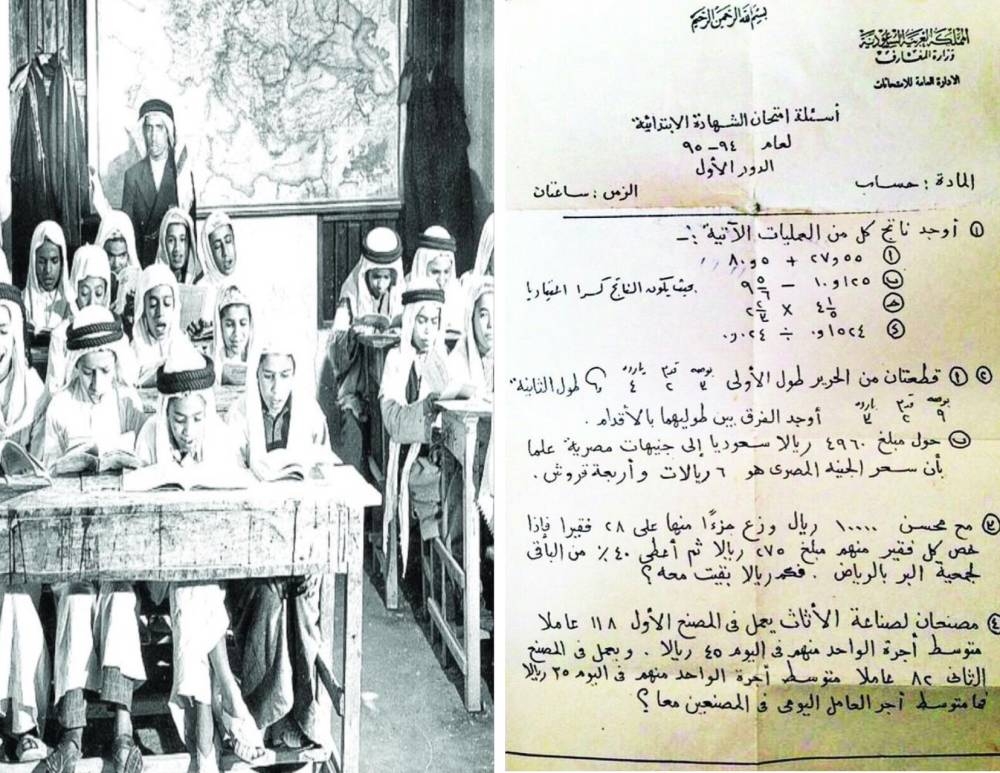 بسم الله الرحمن الرحيم
المملكة العربية السعودية
وزارة المعارف
الادارة العامة للامتحانات
أسئلة امتحان الشهادة الابتدائية
لعام ٩٤ - ٩٥
الدور الأول
المادة : حساب الزمن : ساعتان
١ أوجد ناتج كل من العمليات الآتية :-
أ ٥٥و٢٧ + ٥و٨٠
ب ١٢٥و١٠ - ٩ ٥/٦ بحيث يكون الناتج كسرا اعتياديا
ج ٤ ١/٥ × ٢ ٢/٣
د ١٥٢٤و٠ ÷ ٠٢٤و٠
٢ أ قطعتان من الحرير طول الأولى بوصه ٣ قدم ٢ يارده ٤ و طول الثانية
بوصه ٩ قدم ٢ يارده ٣ أوجد الفرق بين طوليهما بالأقدام .
ب حول مبلغ ٤٩٦٠ ريالا سعوديا إلى جنيهات مصرية علما
بأن سعر الجنيه المصرى هو ٦ ريالات وأربعة قروش .
٣ مع محسن ١٠٠٠٠ ريال وزع جزءًا منها على ٢٨ فقيرا فإذا
خص كل فقير منهم مبلغ ٢٧٥ ريالا ثم أعطى ٤٠٪ من الباقى
لجمعية البر بالرياض . فكم ريالا بقيت معه ؟
٤ مصنعان لصناعة الأثاث يعمل فى المصنع الأول ١١٨ عاملا
متوسط أجرة الواحد منهم فى اليوم ٤٥ ريالا . ويعمل فى المصنع
الثانى ٨٢ عاملا متوسط أجرة الواحد منهم فى اليوم ٣٥ ريالا
فما متوسط أجر العامل اليومى فى المصنعين معا ؟